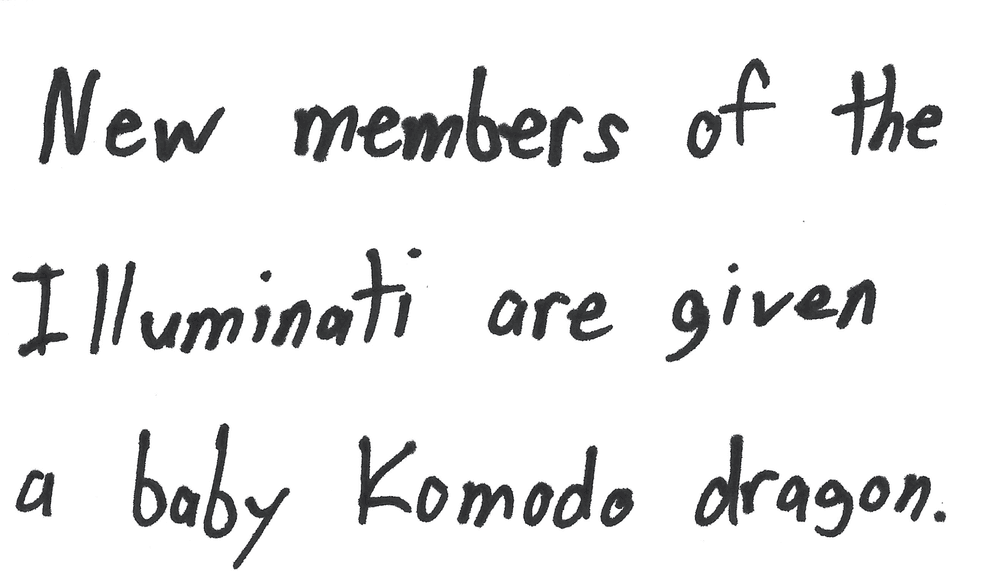 New members of the
Illuminati are given
a baby Komodo dragon.